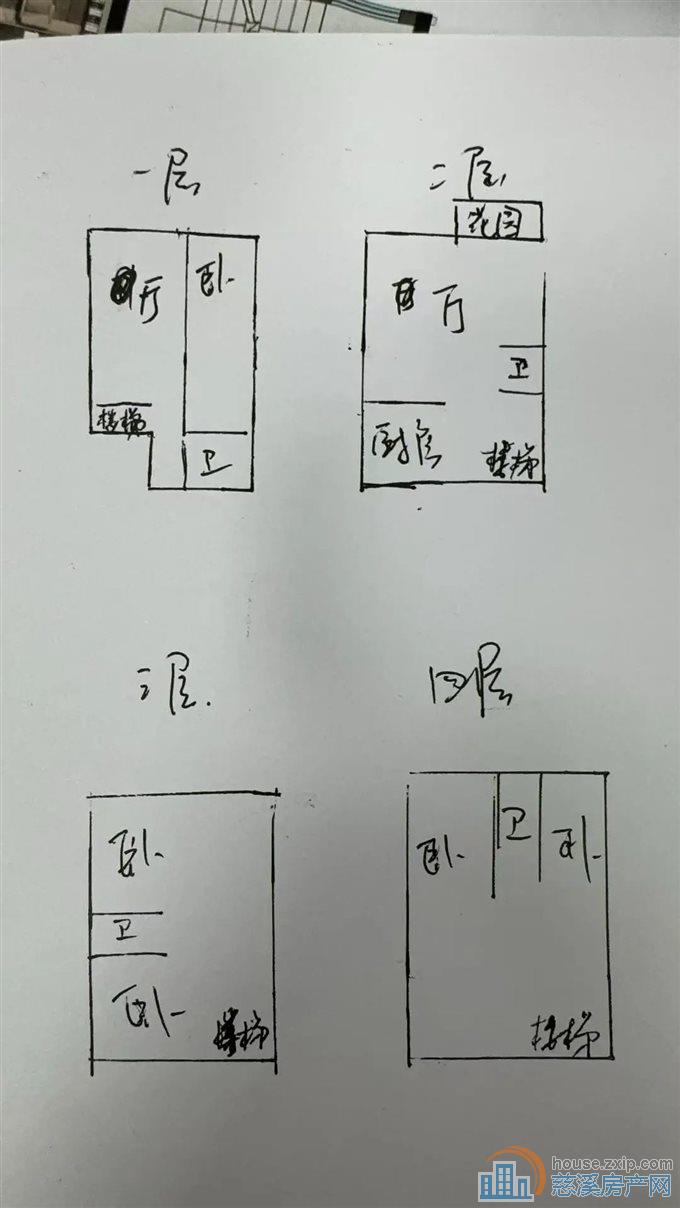 一层
厅
卧
楼梯
卫
二层
花园
厅
卫
厨房
楼梯
三层
卧
卫
卧
楼梯
四层
卧
卫
卧
楼梯
house.zxip.com
慈溪房产网